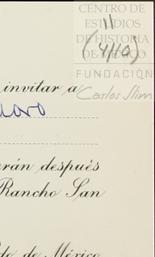 CENTRO DE
ESTUDIOS
DE HISTORIA
DE MÉXICO
FUNDACIÓN
Carlos Slim
11
(4/10)
invitar a
arán después
Rancho San
de de México